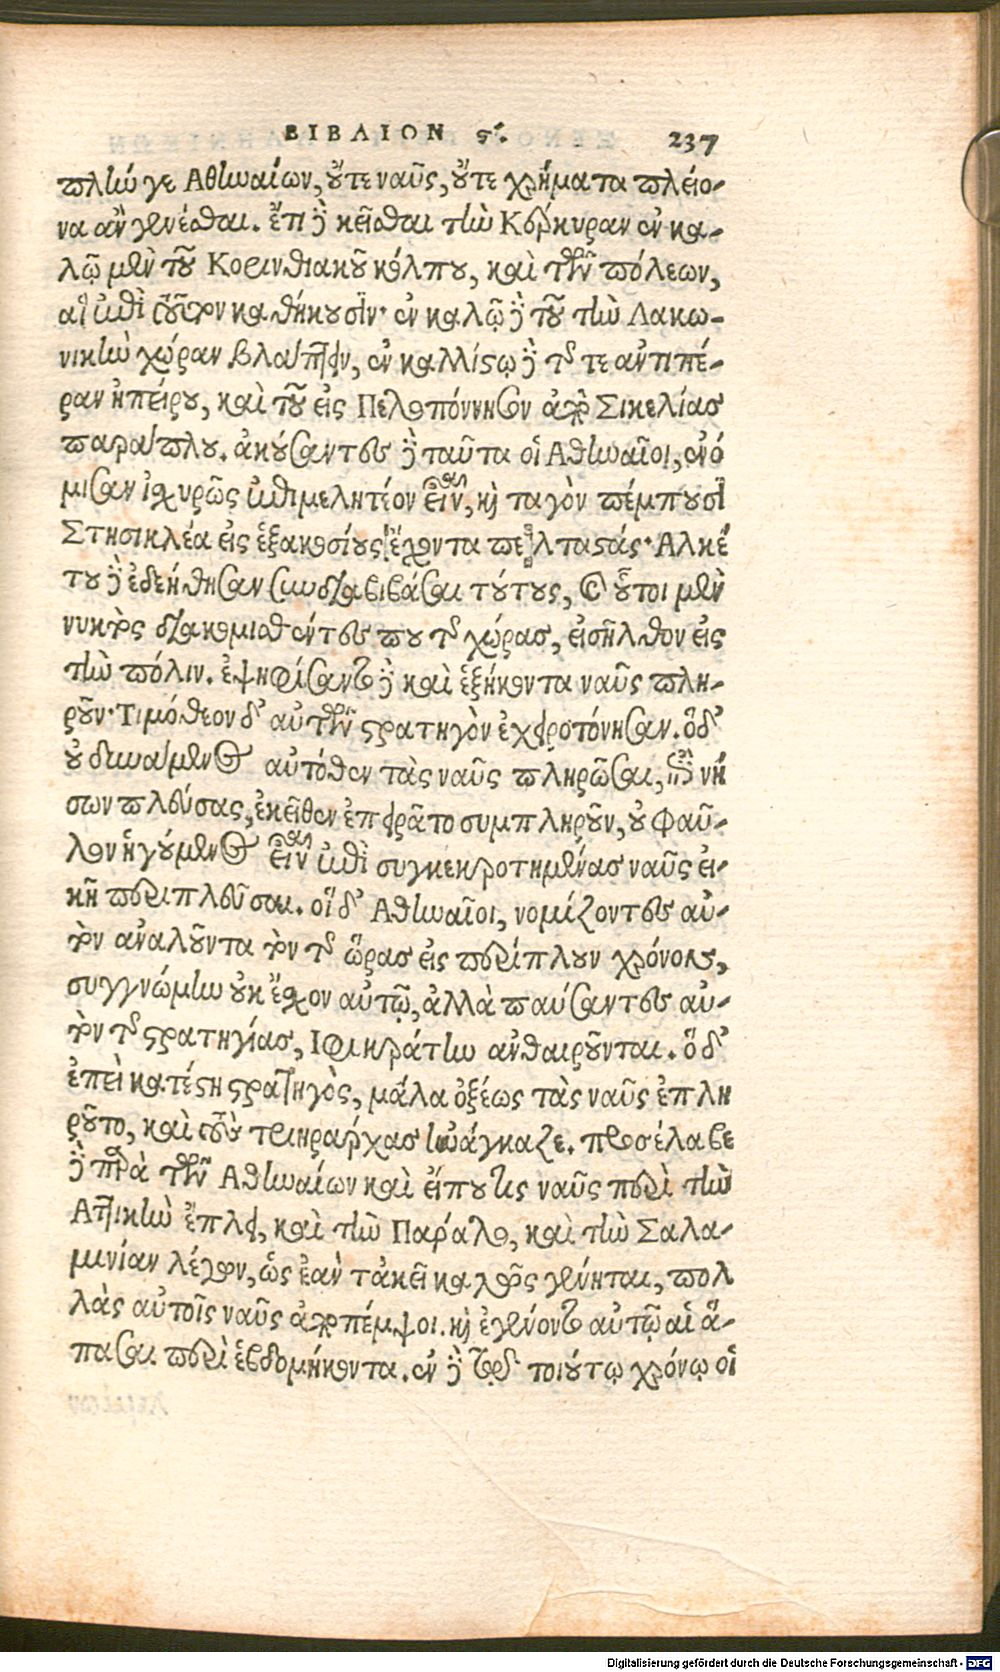 ΒΙΒΛΙΟΝ ϛ΄. 237
πλὴν γε Ἀθηναίων, οὔτε ναῦς, οὔτε χρήματα πλείο-
να ἂν γενέσθαι. ἔτι δὲ κεῖσθαι τὴν Κόρκυραν ἐν κα-
λῷ μὲν τοῦ Κορινθιακοῦ κόλπου, καὶ τῶν πόλεων,
αἳ ἐπὶ τοῦτον καθήκουσιν· ἐν καλῷ δὲ τοῦ τὴν Λακω-
νικὴν χώραν βλάπτειν, ἐν καλλίστῳ δὲ τῆς τε ἀντιπέ-
ραν ἠπείρου, καὶ τοῦ εἰς Πελοπόννησον ἀπὸ Σικελίας
παράπλου. ἀκούσαντες δὲ ταῦτα οἱ Ἀθηναῖοι, ἐνό
μισαν ἰσχυρῶς ἐπιμελητέον εἶναι, καὶ ταγὸν πέμπουσι
Στησικλέα εἰς ἑξακοσίους ἔχοντα πελταστάς· Ἀλκέ
του δὲ ἐδεήθησαν συνδιαβιβάσαι τούτους, καὶ οὗτοι μὲν
νυκτὸς διακομισθέντες που τῆς χώρας, εἰσῆλθον εἰς
τὴν πόλιν. ἐψηφίσαντο δὲ καὶ ἑξήκοντα ναῦς πλη-
ροῦν· Τιμόθεον δ' αὐτῶν στρατηγὸν ἐχειροτόνησαν. ὃ δ'
οὐ δυνάμενος αὐτόθεν τὰς ναῦς πληρῶσαι, ἐπὶ νή
σων πλεύσας, ἐκεῖθεν ἐπειρᾶτο συμπληροῦν, οὐ φαῦ-
λον ἡγούμενος εἶναι ἐπὶ συγκεκροτημένας ναῦς εἰ-
κῆ περιπλεῦσαι. οἳ δ' Ἀθηναῖοι, νομίζοντες αὐ-
τὸν ἀναλοῦντα τὸν τῆς ὥρας εἰς περίπλουν χρόνον,
συγγνώμην οὐκ ἔσχον αὐτῷ, ἀλλὰ παύσαντες αὐ-
τὸν τῆς στρατηγίας, Ἰφικράτην ἀνθαιροῦνται. ὃ δ'
ἐπεὶ κατέστη στρατηγὸς, μάλα ὀξέως τὰς ναῦς ἐπλη
ροῦτο, καὶ τοὺς τριηράρχας ἠνάγκαζε. προσέλαβε
δὲ παρὰ τῶν Ἀθηναίων καὶ εἴπου τις ναῦς περὶ τὴν
Ἀττικὴν ἔπλει, καὶ τὴν Πάραλον, καὶ τὴν Σαλα-
μινίαν λέγων, ὡς ἐὰν τἀκεῖ καλῶς γένηται, πολ
λὰς αὐτοῖς ναῦς ἀποπέμψοι. καὶ ἐγένοντο αὐτῷ αἱ ἅ-
πασαι περὶ ἑβδομήκοντα. ἐν δὲ τῷδε τοιούτῳ χρόνῳ οἱ
Digitalisierung gefördert durch die Deutsche Forschungsgemeinschaft - DFG